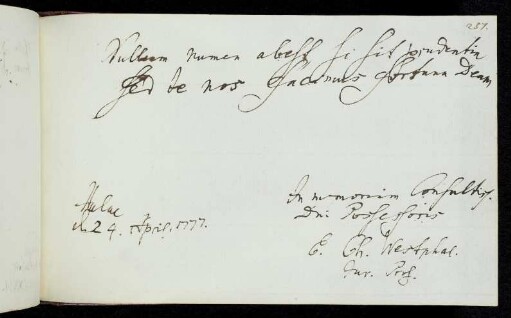 237.
Nullum numen abest si sit prudentia
sed te nos facimus fortuna Deam
Halae
d. 24. April. 1777.
In memoriam Consultiss.
Dni Possessoris
E. Ch. Westphal.
Jur. Prof.